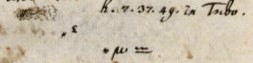 h. 7. 37. 49. in Tubo.
ε
• μ =